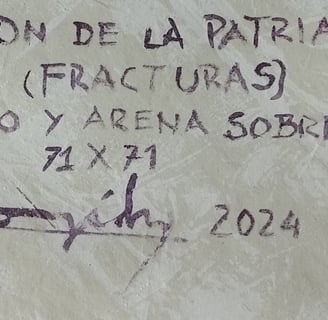 ON DE LA PATRIA
(FRACTURAS)
O Y ARENA SOBRE
71 X 71
2024